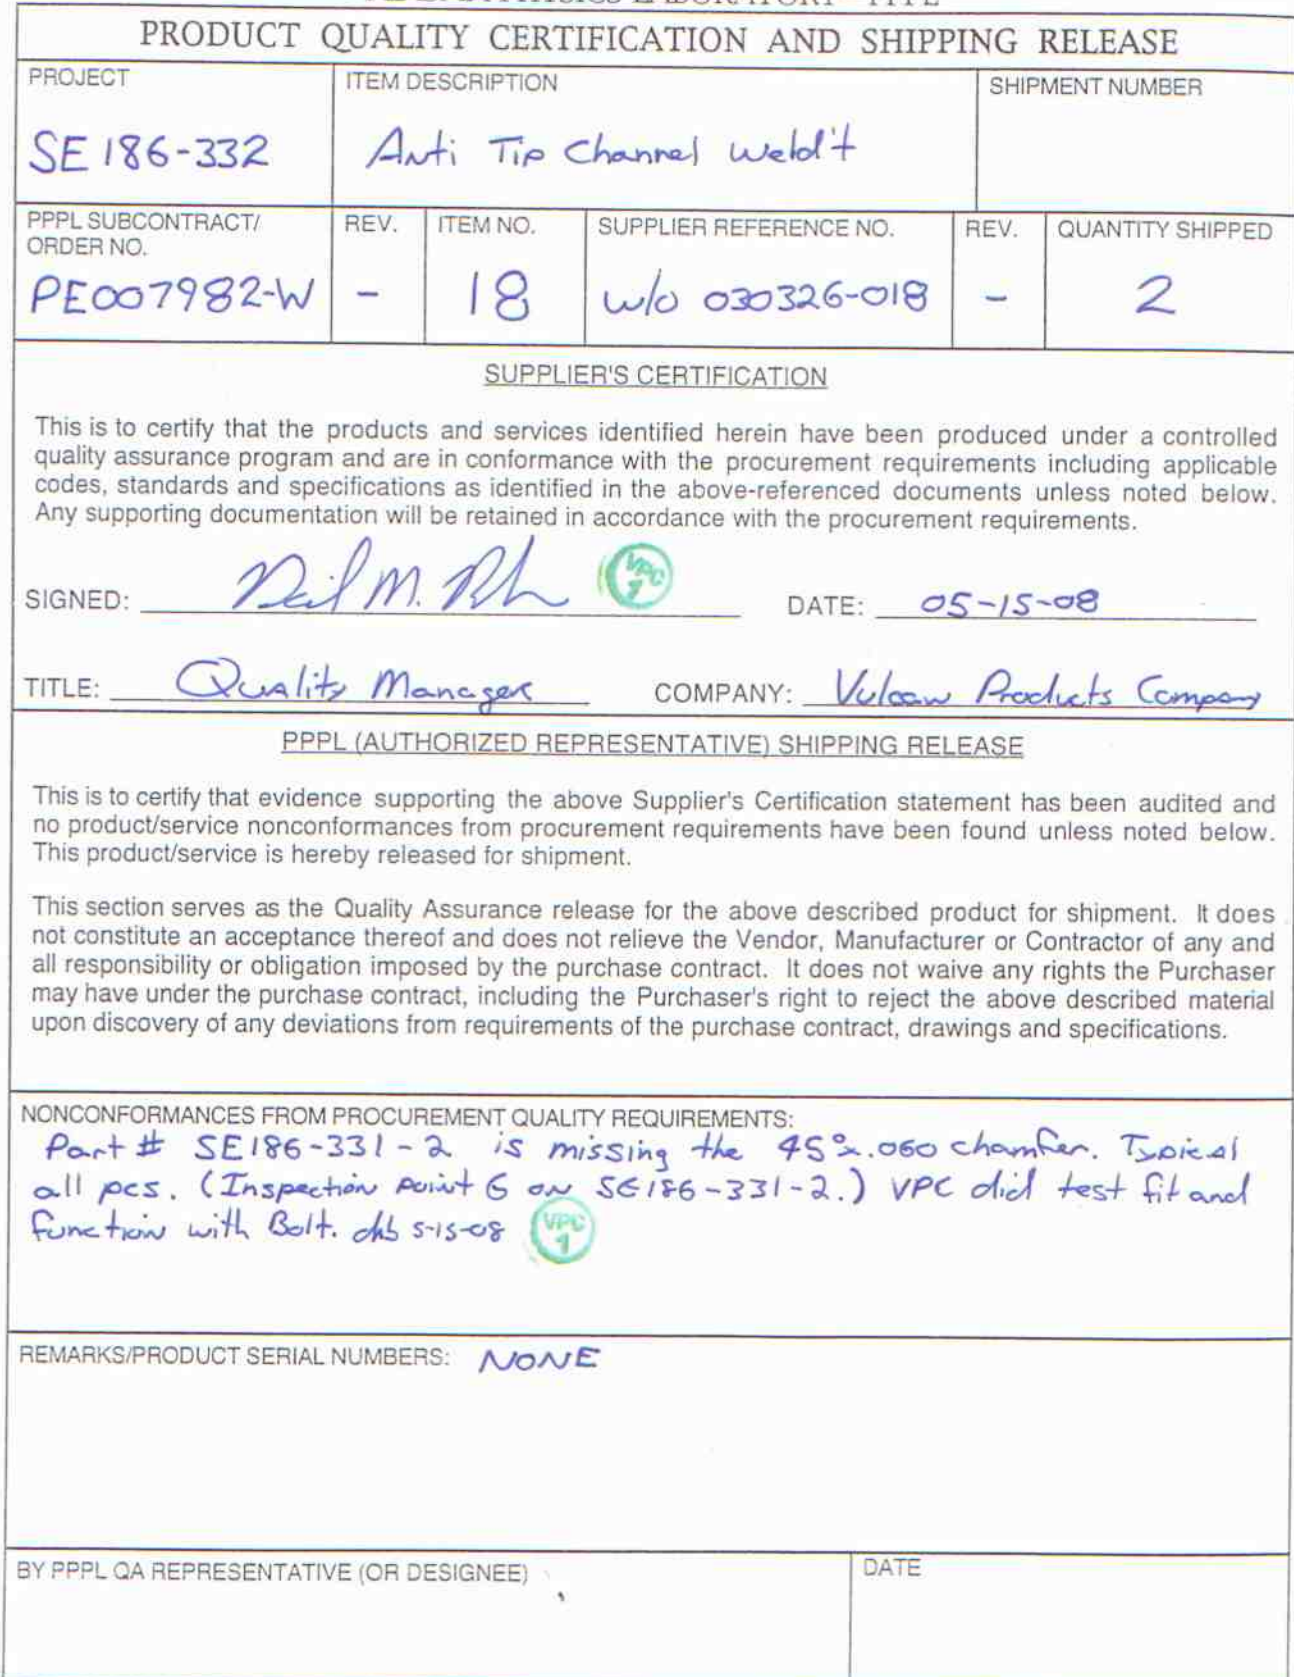 PRODUCT QUALITY CERTIFICATION AND SHIPPING RELEASE
PROJECT
SE186-332
ITEM DESCRIPTION
Anti Tip Channel Weld't
SHIPMENT NUMBER
PPPL SUBCONTRACT/
ORDER NO.
PE007982-W
REV.
-
ITEM NO.
18
SUPPLIER REFERENCE NO.
w/o 030326-018
REV.
-
QUANTITY SHIPPED
2
SUPPLIER'S CERTIFICATION
This is to certify that the products and services identified herein have been produced under a controlled
quality assurance program and are in conformance with the procurement requirements including applicable
codes, standards and specifications as identified in the above-referenced documents unless noted below.
Any supporting documentation will be retained in accordance with the procurement requirements.
SIGNED:
VPC
1
DATE: 05-15-08
TITLE: Quality Manager
COMPANY: Vulcan Products Company
PPPL (AUTHORIZED REPRESENTATIVE) SHIPPING RELEASE
This is to certify that evidence supporting the above Supplier's Certification statement has been audited and
no product/service nonconformances from procurement requirements have been found unless noted below.
This product/service is hereby released for shipment.
This section serves as the Quality Assurance release for the above described product for shipment. It does
not constitute an acceptance thereof and does not relieve the Vendor, Manufacturer or Contractor of any and
all responsibility or obligation imposed by the purchase contract. It does not waive any rights the Purchaser
may have under the purchase contract, including the Purchaser's right to reject the above described material
upon discovery of any deviations from requirements of the purchase contract, drawings and specifications.
NONCONFORMANCES FROM PROCUREMENT QUALITY REQUIREMENTS:
Part # SE186-331-2 is missing the 45°x.060 chamfer. Typical
all pcs. (Inspection point G on SE186-331-2.) VPC did test fit and
function with Bolt. 5-15-08
VPC
1
REMARKS/PRODUCT SERIAL NUMBERS: NONE
BY PPPL QA REPRESENTATIVE (OR DESIGNEE)
DATE